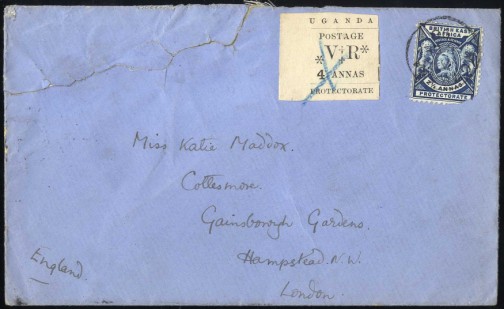 UGANDA
POSTAGE
*V*R*
4 ANNAS
PROTECTORATE
BRITISH EAST
AFRICA
2½ ANNAS
PROTECTORATE
Miss Katie Maddox.
Cottesmore.
Gainsborough Gardens.
Hampstead. N.W.
London.
England.